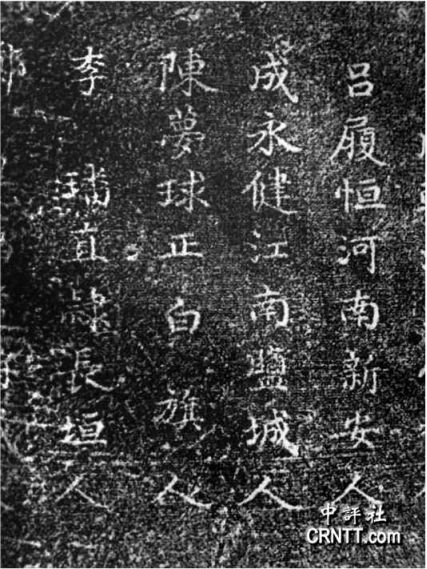 呂履恒河南新安人
成永健江南鹽城人
陳夢球正白旗人
李璠直隸長垣人
中評社
CRNTT.com